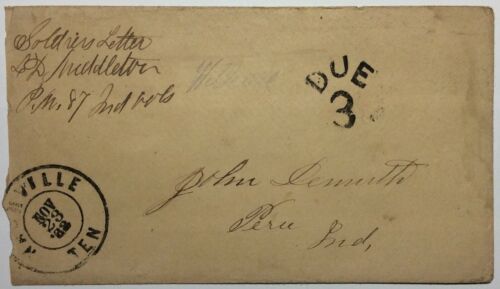 Soldiers Letter
D Middleton
P.M. 87 Ind Vols
DUE
3
NASHVILLE
TEN
NOV
23
John Demuth
Peru
Ind,